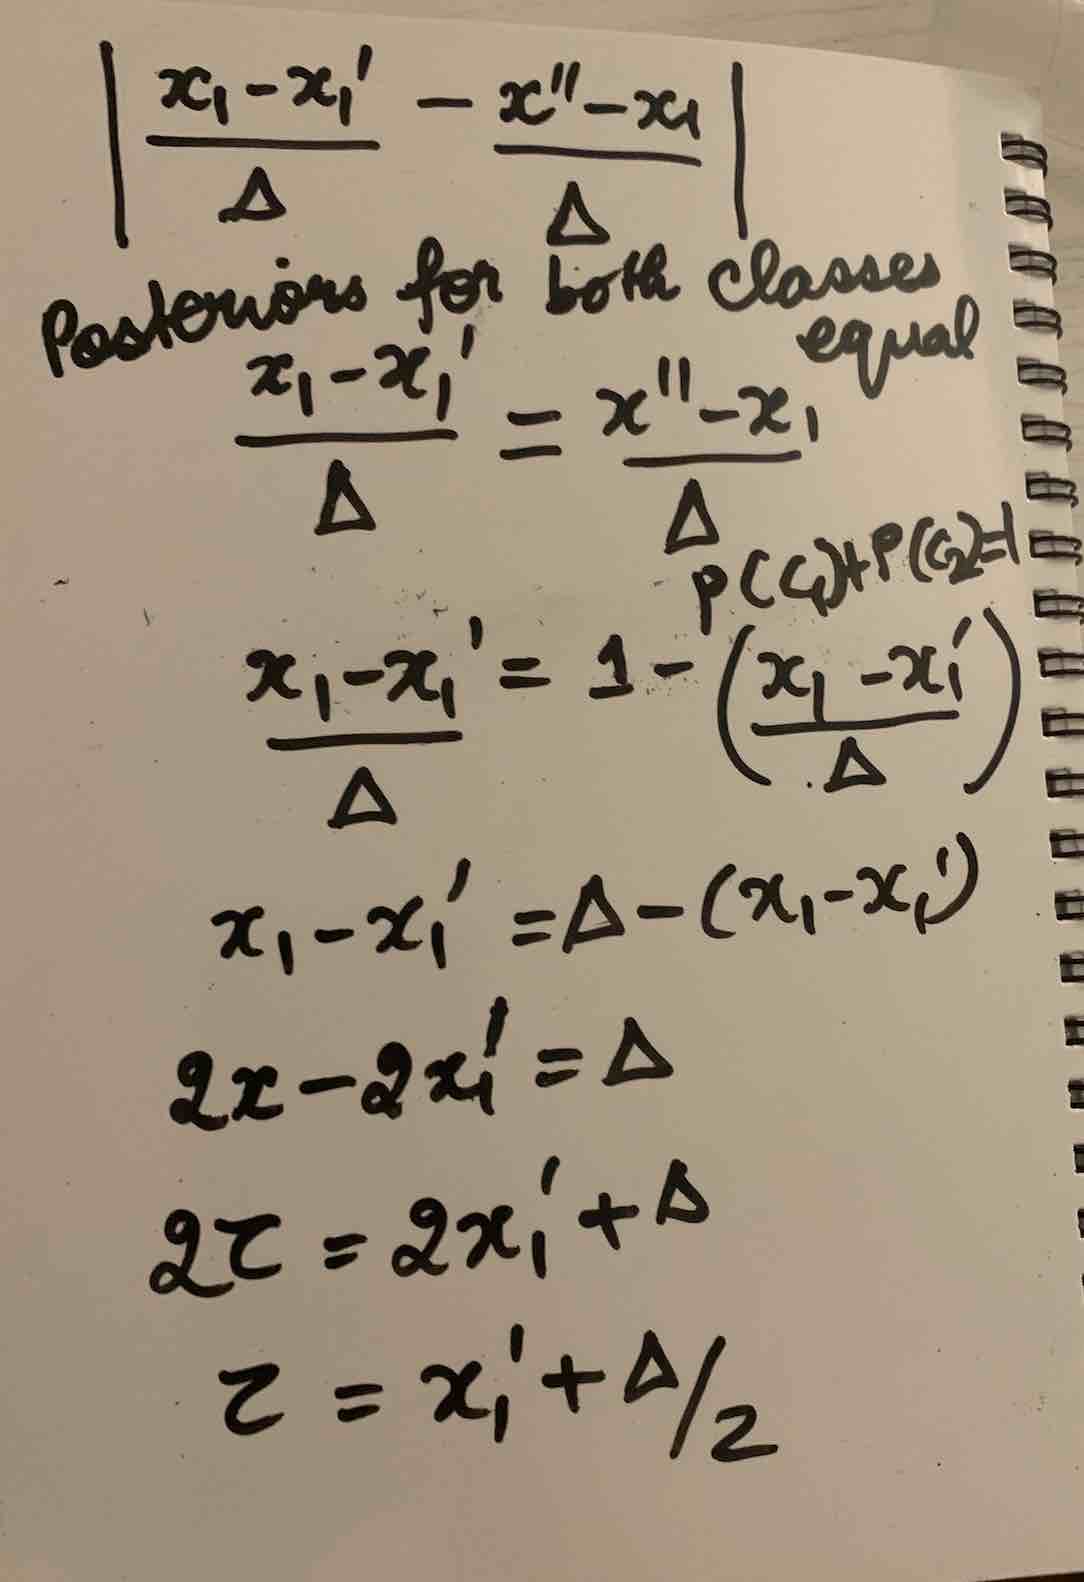 | (x₁ - x₁')/Δ - (x'' - x₁)/Δ |
Posteriors for both classes
equal
(x₁ - x₁')/Δ = (x'' - x₁)/Δ
P(C₁)+P(C₂)=1
(x₁ - x₁')/Δ = 1 - ((x₁ - x₁')/Δ)
x₁ - x₁' = Δ - (x₁ - x₁')
2x - 2x₁' = Δ
2τ = 2x₁' + Δ
τ = x₁' + Δ/2